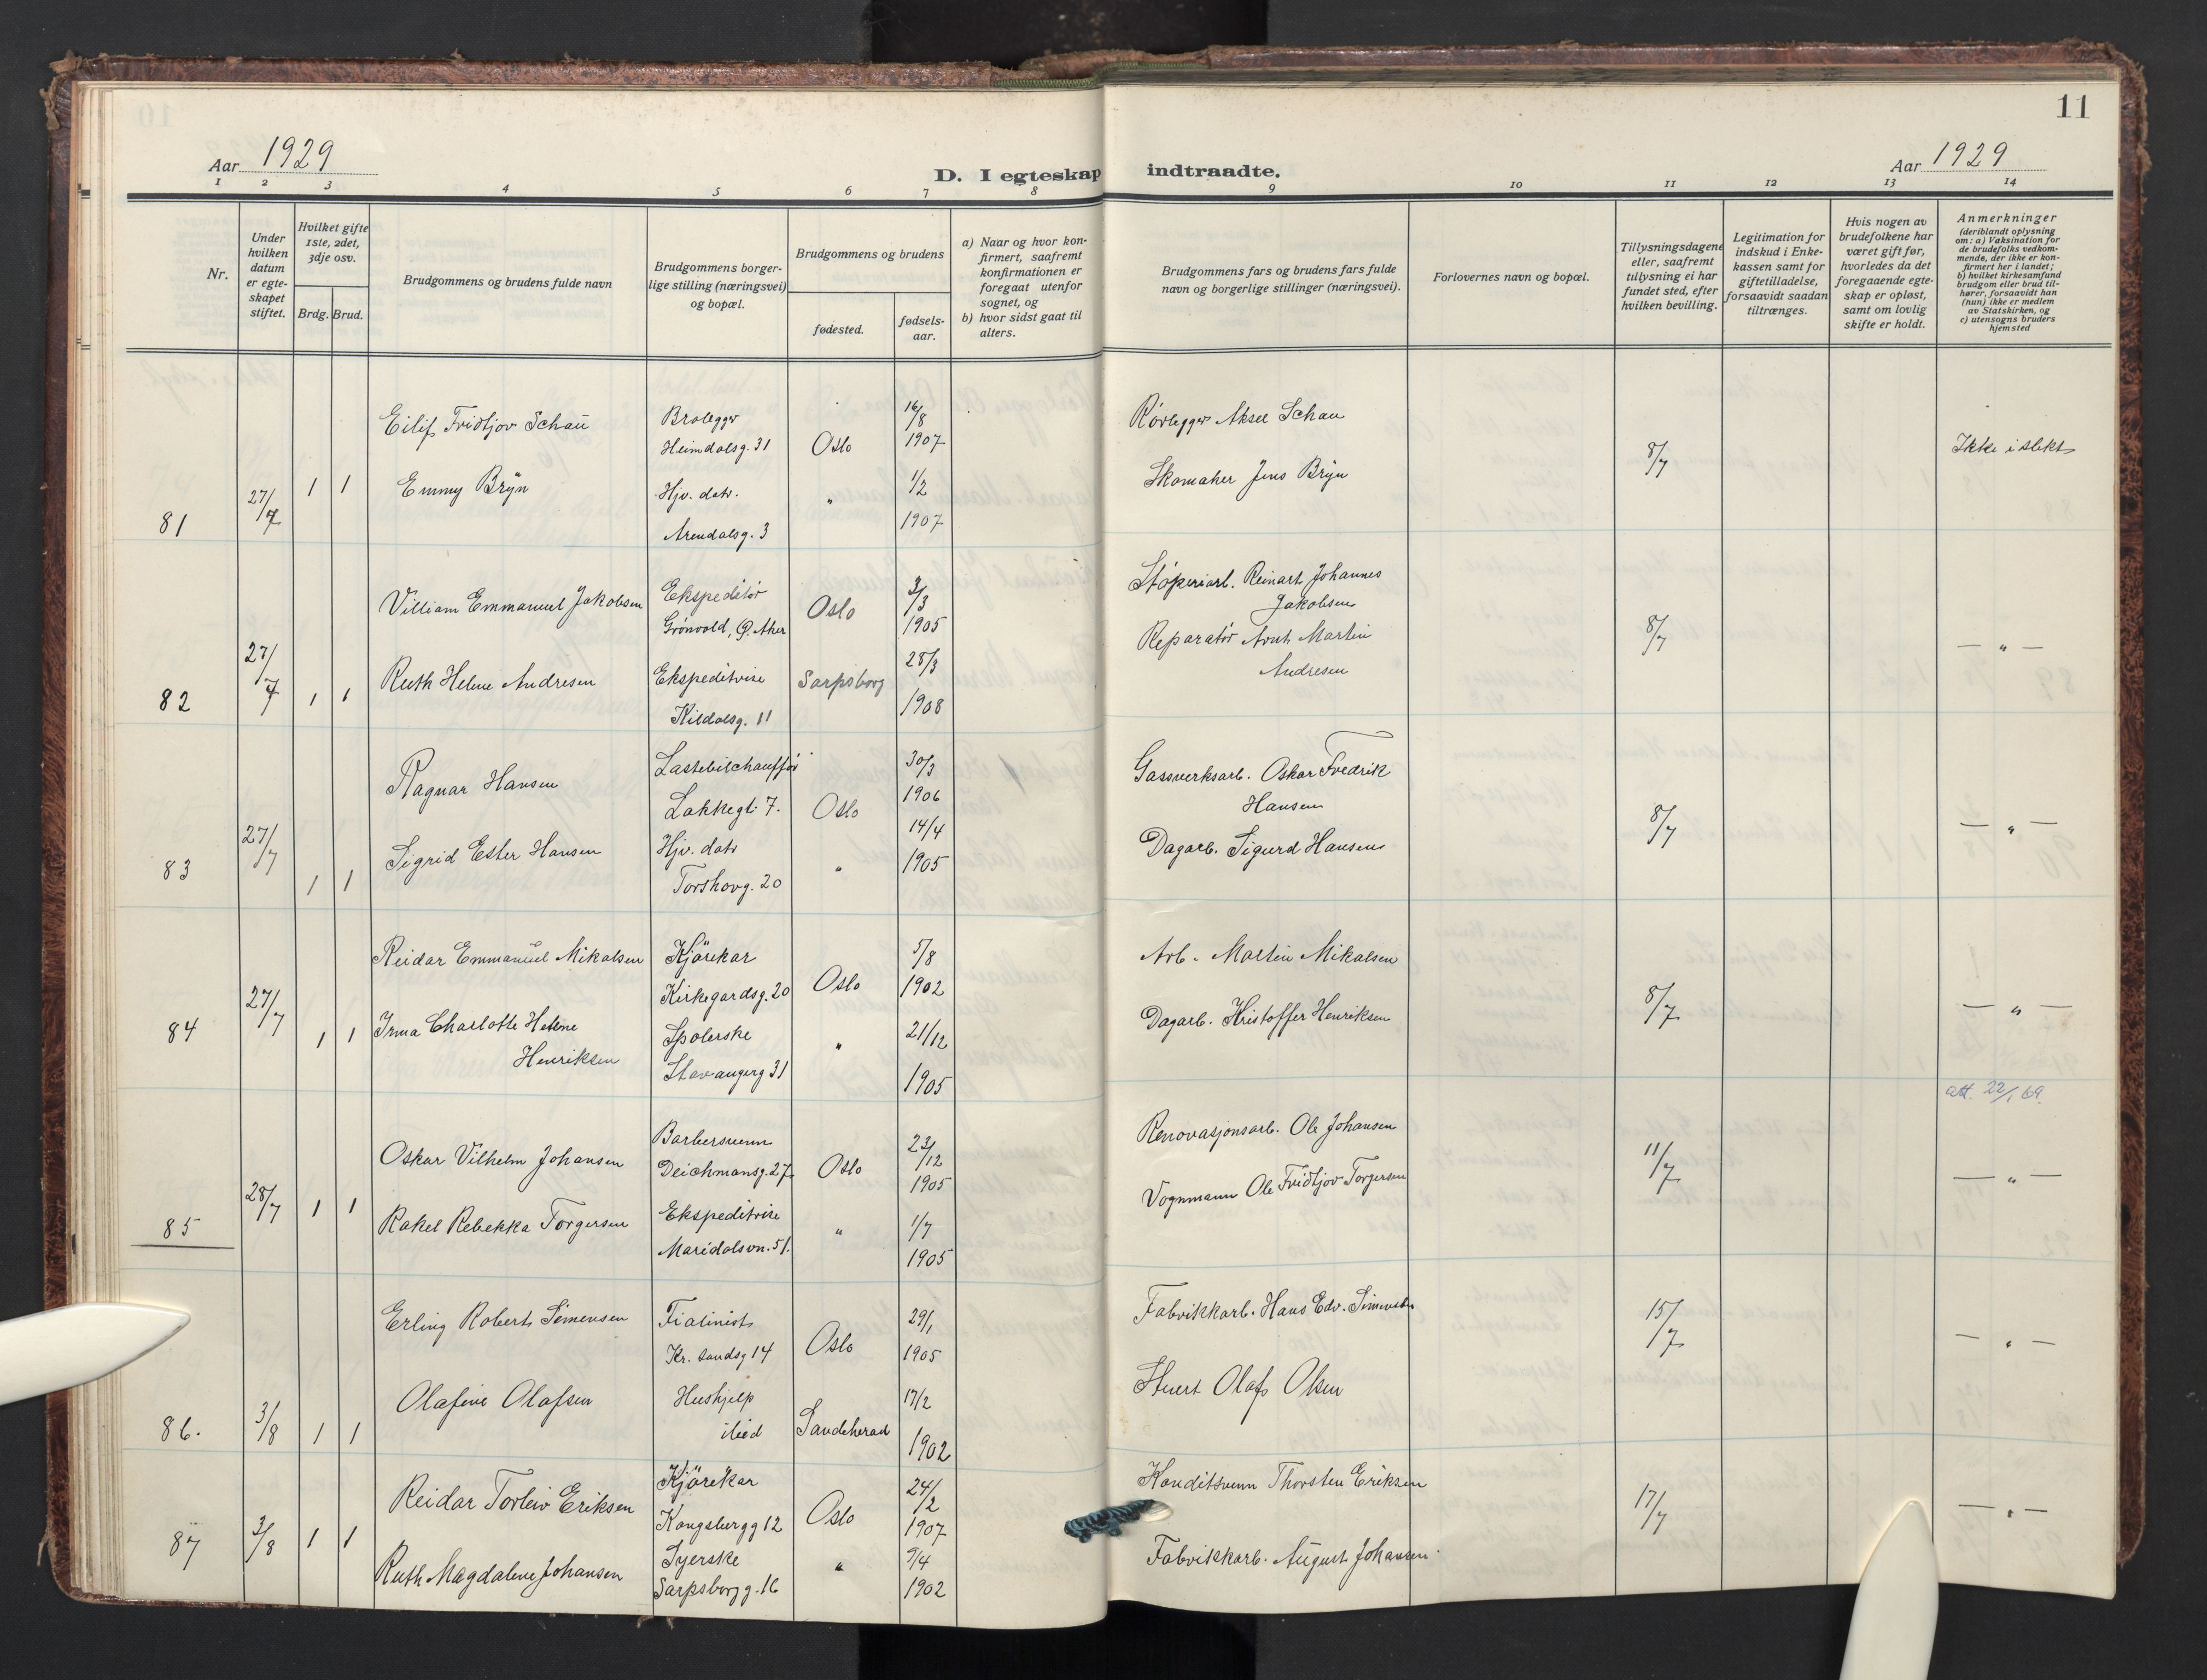 11
Aar 1929
Aar 1929
D. I egteskap indtraadte.
1 2 3 4 5 6 7 8 9 10 11 12 13 14
Nr.
Under
hvilken
datum
er egte-
skapet
stiftet.
Hvilket gifte
1ste, 2det,
3dje osv.
Brdg. Brud.
Brudgommens og brudens fulde navn
Brudgommens borger-
lige stilling (næringsvei)
og bopæl.
Brudgommens og brudens
fødested.
fødsels-
aar.
a) Naar og hvor kon-
firmert, saafremt
konfirmationen er
foregaat utenfor
sognet, og
b) hvor sidst gaat til
alters.
Brudgommens fars og brudens fars fulde
navn og borgerlige stillinger (næringsvei).
Forlovernes navn og bopæl.
Tillysningsdagene
eller, saafremt
tillysning ei har
fundet sted, efter
hvilken bevilling.
Legitimation for
indskud i Enke-
kassen samt for
giftetilladelse,
forsaavidt saadan
tiltrænges.
Hvis nogen av
brudefolkene har
været gift før,
hvorledes da det
foregaaende egte-
skap er opløst,
samt om lovlig
skifte er holdt.
Anmerkninger
(deriblandt oplysning
om: a) Vaksination for
de brudefolks vedkom-
mende, der ikke er kon-
firmert her i landet;
b) hvilket kirkesamfund
brudgom eller brud til-
hører, forsaavidt han
(hun) ikke er medlem
av Statskirken, og
c) utensogns bruders
hjemsted
81
27/7
1 1
Eilif Fridtjov Schau
Brolegger
Heimdalsg. 31
Oslo
16/8
1907
Rørlegger Aksel Schau
8/7
Ikke i slekt
Emmy Bryn
Hjv. datr.
Arendalsg. 3
"
1/2
1907
Skomaker Jens Bryn
82
27/7
1 1
Villiam Emmanuel Jakobsen
Ekspeditør
Grønvold, Ø. Aker
Oslo
3/3
1905
Støperiarb. Reinart Johannes
Jakobsen
8/7
— " —
Ruth Helene Andresen
Ekspeditrise
Kildalsg. 11
Sarpsborg
28/3
1908
Reparatør Arnt Martin
Andresen
83
27/7
1 1
Ragnar Hansen
Lastebilchauffør
Lakkegt. 7.
Oslo
30/3
1906
Gassverksarb. Oskar Fredrik
Hansen
8/7
— " —
Sigrid Ester Hansen
Hjv. datr
Torshovg. 20
"
14/4
1905
Dagarb. Sigurd Hansen
84
27/7
1 1
Reidar Emmanuel Mikalsen
Kjörekar
Kirkegardsg. 20
Oslo
5/8
1902
Arb. Martin Mikalsen
8/7
— " —
Irma Charlotte Helene
Henriksen
Spolerske
Stavangerg 31
"
21/12
1905
Dagarb. Kristoffer Henriksen
att. 22/1 69.
85
28/7
1 1
Oskar Vilhelm Johansen
Barbersvenn
Deichmansg. 27
Oslo
23/12
1905
Renovasjonsarb. Ole Johansen
11/7
— " —
Rakel Rebekka Torgersen
Ekspeditrise
Maridalsvn. 51.
"
1/7
1905
Vognmann Ole Fridtjov Torgersen
86.
3/8
1 1
Erling Robert Simensen
Filalinist
Kr. sandsg 14
Oslo
29/1
1905
Fabrikkarb. Hans Edv. Simensen
15/7
— " —
Olafine Olafsen
Hushjelp
ibid
Sandeherad
17/2
1902
Stuert Olaf Olsen
87
3/8
1 1
Reidar Torleiv Eriksen
Kjörekar
Kongsbergg 12
Oslo
24/2
1907
Konditsvenn Thorsten Eriksen
17/7
— " —
Ruth Magdalene Johansen
Syerske
Sarpsborgg. 16
"
9/4
1902
Fabrikkarb. August Johansen